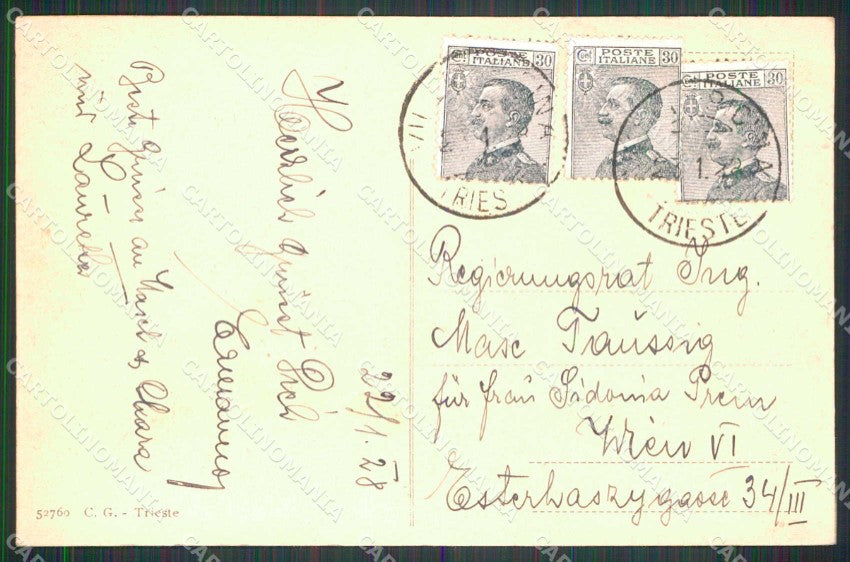 POSTE
ITALIANE
Cent 30
POSTE
ITALIANE
Cent 30
POSTE
ITALIANE
30
TRIESTE
TRIESTE
Herzlich grüsst Dich
Ermanno
22/1.28
mit Lauretta
Regierungsrat Ing.
Marc Taussig
für Frau Sidonia Prem
Wien VI
Esterhaszygasse 34/III
52760 C. G. - Trieste
CARTOLINOMANIA